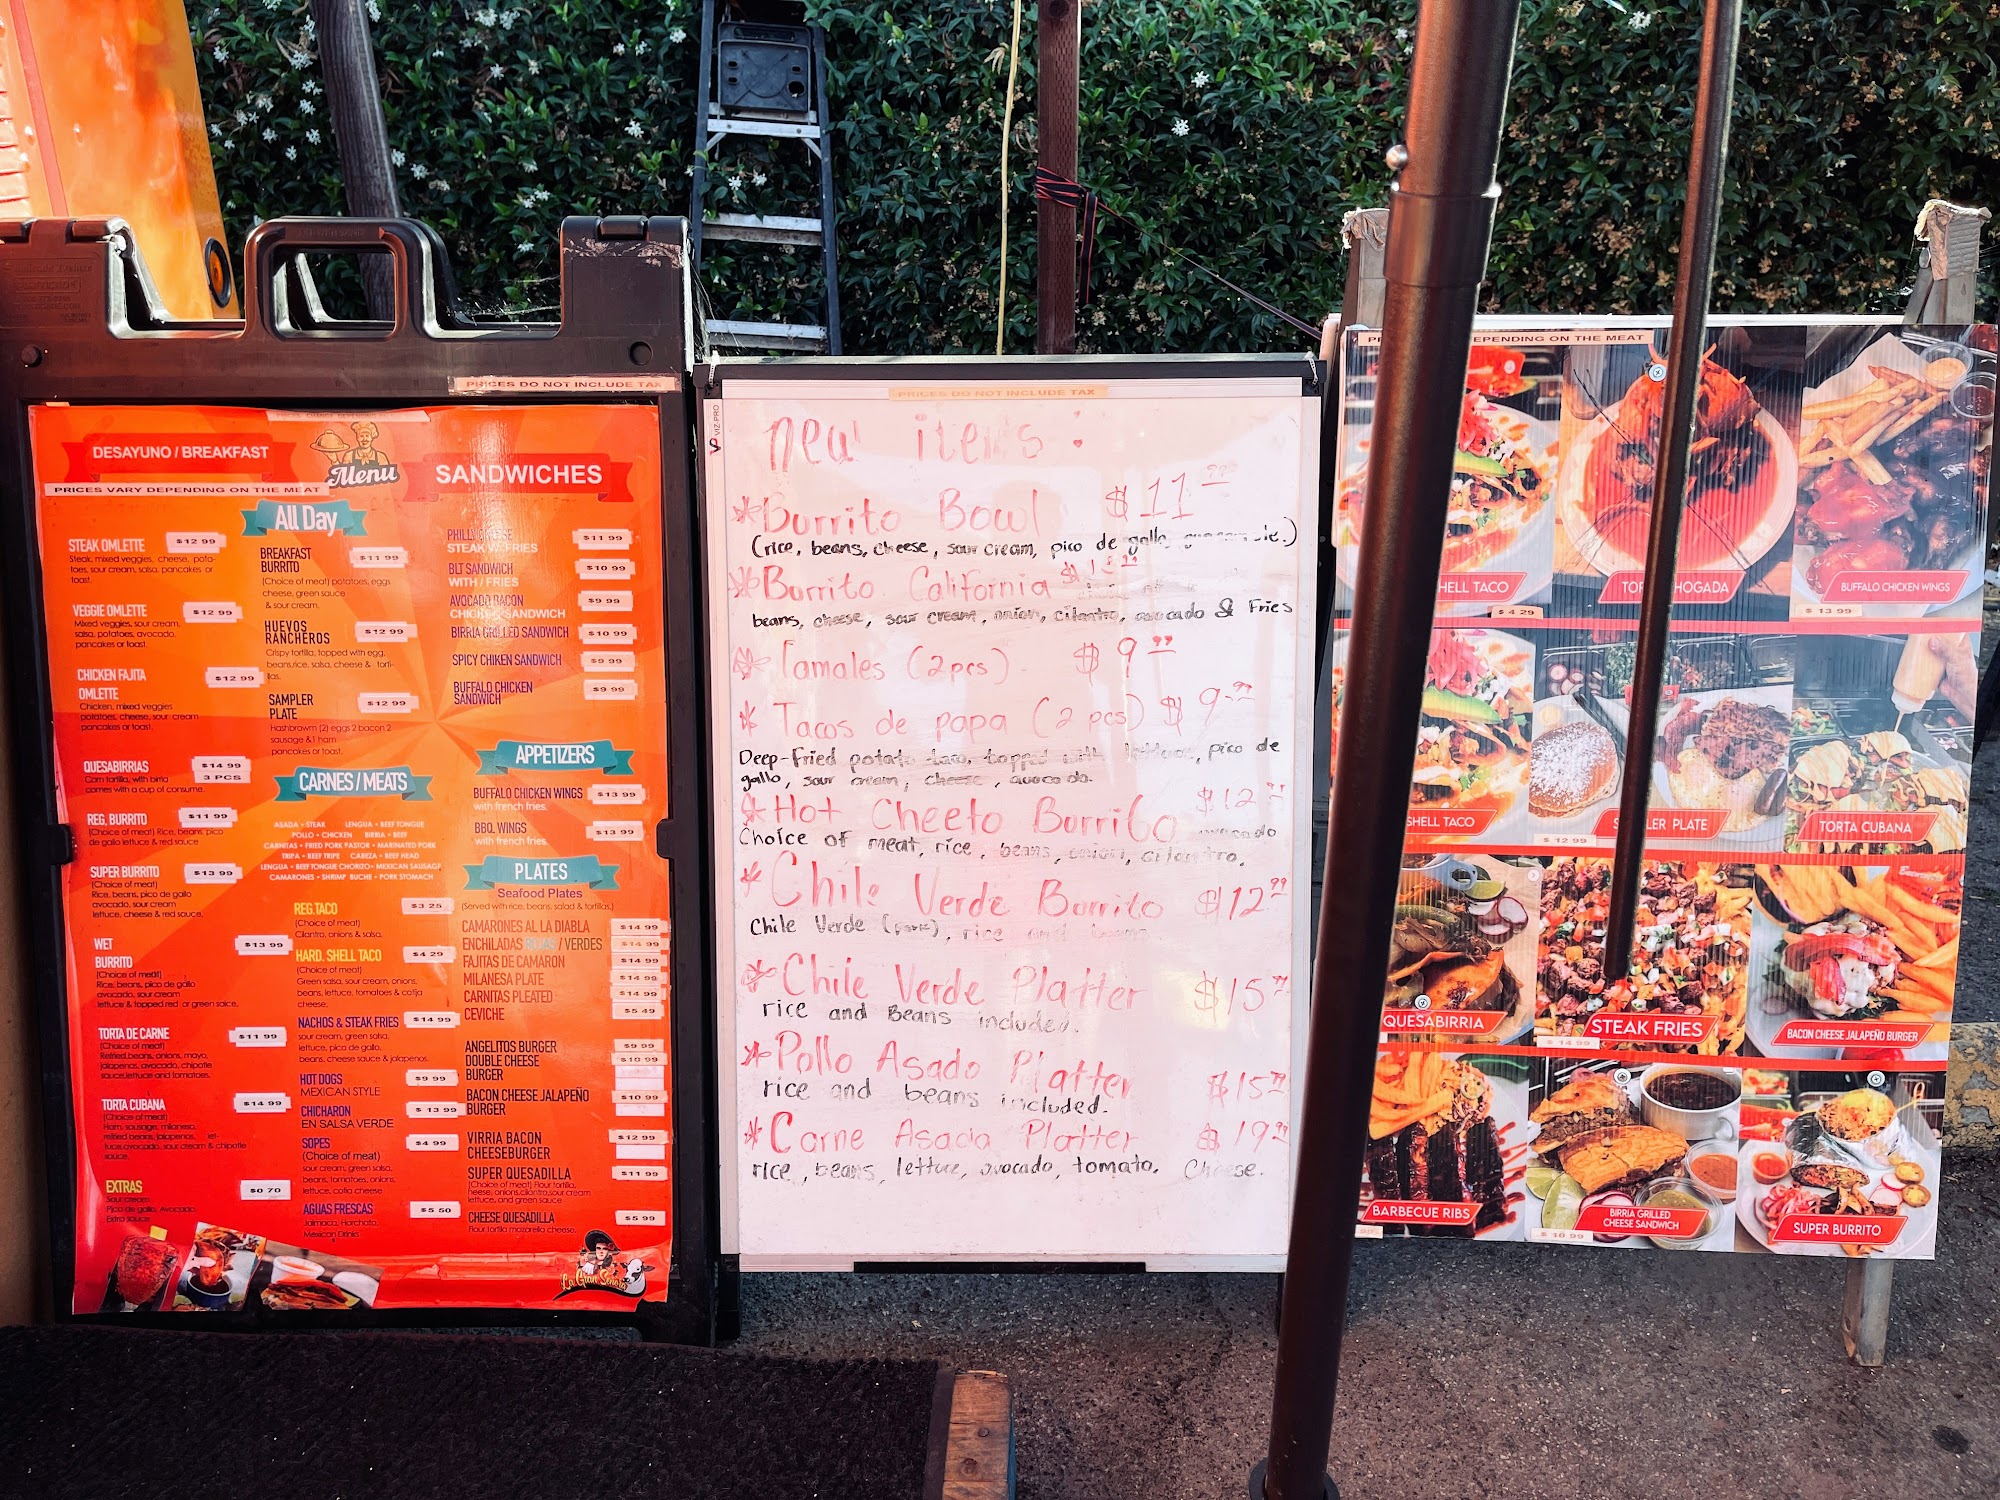 PRICES DO NOT INCLUDE TAX
DESAYUNO / BREAKFAST
Menu
SANDWICHES
PRICES VARY DEPENDING ON THE MEAT
All Day
STEAK OMLETTE $12 99
Steak, mixed veggies, cheese, pota-
toes, sour cream, salsa, pancakes or
toast.
VEGGIE OMLETTE $12 99
Mixed veggies, sour cream,
salsa, potatoes, avocado,
pancakes or toast.
CHICKEN FAJITA $12 99
OMLETTE
Chicken, mixed veggies
potatoes, cheese, sour cream
pancakes or toast.
QUESABIRRIAS $14 99
3 PCS
Corn tortilla, with birria
comes with a cup of consume.
REG, BURRITO $11 99
(Choice of meat) Rice, beans, pico
de gallo lettuce & red sauce
SUPER BURRITO $13 99
(Choice of meat)
Rice, beans, pico de gallo
avocado, sour cream
lettuce, cheese & red sauce,
WET $13 99
BURRITO
(Choice of meat)
Rice, beans, pico de gallo
avocado, sour cream
lettuce & topped red or green salce,
TORTA DE CARNE $11 99
(Choice of meat)
Refried beans, onions, mayo,
jalapenos, avocado, chipotle
sauce lettuce and tomatoes.
TORTA CUBANA $14 99
(Choice of meat)
Ham, sausage, milanesa,
refried beans, jalapenos, let-
tuce, avocado, sour cream & chipotle
sauce.
EXTRAS $0 70
Sour cream
Pico de gallo, Avocado,
Extra sauce
BREAKFAST $11 99
BURRITO
(Choice of meat) potatoes, eggs
cheese, green sauce
& sour cream.
HUEVOS $12 99
RANCHEROS
Crispy tortilla, topped with egg,
beans, rice, salsa, cheese & torti-
llas.
SAMPLER $12 99
PLATE
Hashbrawm (2) eggs 2 bacon 2
sausage &1 ham
pancakes or toast.
CARNES / MEATS
ASADA • STEAK LENGUA • BEEF TONGUE
POLLO • CHICKEN BIRRIA • BEEF
CARNITAS • FRIED PORK PASTOR • MARINATED PORK
TRIPA • BEEF TRIPE CABEZA • BEEF HEAD
LENGUA • BEEF TONGUE CHORITO • MEXICAN SAUSAGE
CAMARONES • SHRIMP BUCHE • PORK STOMACH
REG.TACO $3 25
(Choice of meat)
Cilantro, onions & salsa.
HARD. SHELL TACO $4 29
(Choice of meat)
Green salsa, sour cream, onions,
beans, lettuce, tomatoes & cotija
cheese,
NACHOS & STEAK FRIES $14 99
sour cream, green salsa,
lettuce, pico de gallo,
beans, cheese sauce & jalapenos.
HOT DOGS $9 99
MEXICAN STYLE
CHICHARON $ 13 99
EN SALSA VERDE
SOPES $4 99
(Choice of meat)
sour cream, green salsa,
beans, tomatoes, onions,
lettuce, cotia cheese
AGUAS FRESCAS $5 50
Jaimaca, Horchata,
Mexican Drinks
PHILLY CHEESE $11 99
STEAK W/ FRIES
BLT SANDWICH $10 99
WITH / FRIES
AVOCADO BACON $9 99
CHICKEN SANDWICH
BIRRIA GRILLED SANDWICH $10 99
SPICY CHIKEN SANDWICH $9 99
BUFFALO CHICKEN $9 99
SANDWICH
APPETIZERS
BUFFALO CHICKEN WINGS $13 99
with french fries.
BBQ. WINGS $13 99
with french fries.
PLATES
Seafood Plates
(Served with rice, beans, salad & tortillas.)
CAMARONES AL LA DIABLA $14 99
ENCHILADAS ROJAS / VERDES $14 99
FAJITAS DE CAMARON $14 99
MILANESA PLATE $14 99
CARNITAS PLEATED $14 99
CEVICHE $5 49
ANGELITOS BURGER $9 99
DOUBLE CHEESE $10 99
BURGER
BACON CHEESE JALAPEÑO $10 99
BURGER
VIRRIA BACON $12 99
CHEESEBURGER
SUPER QUESADILLA $11 99
(Choice of meat) Flour tortilla,
heese, onions, cilantro, sour cream
lettuce, and green sauce
CHEESE QUESADILLA $5 99
Flour tortilla mozarella cheese.
La Gran Señora
VIZ-PRO
PRICES DO NOT INCLUDE TAX
New items:
*Burrito Bowl $11.99
(rice, beans, cheese, sour cream, pico de gallo,
*Burrito California $13.99
beans, cheese, sour cream, onion, cilantro, avocado & Fries
*Tamales (2pcs) $9.99
*Tacos de papa (2 pcs) $9.99
Deep-Fried potato taco, topped with lettuce, pico de
gallo, sour cream, cheese, avocado.
*Hot Cheeto Burrito $12.99
Choice of meat, rice, beans, onion, cilantro, avocado
*Chile Verde Burrito $12.99
Chile Verde (pork), rice and beans
*Chile Verde Platter $15.99
rice and Beans included.
*Pollo Asado Platter $15.99
rice and beans included.
*Carne Asada Platter $19.99
rice, beans, lettuce, avocado, tomato, Cheese.
DEPENDING ON THE MEAT
SHELL TACO
$ 4 29
HOGADA
BUFFALO CHICKEN WINGS
$ 13 99
SHELL TACO
$ 12 99
PLATE
TORTA CUBANA
QUESABIRRIA
STEAK FRIES
$ 14 99
BACON CHEESE JALAPEÑO BURGER
BARBECUE RIBS
BIRRIA GRILLED
CHEESE SANDWICH
$ 10 99
SUPER BURRITO